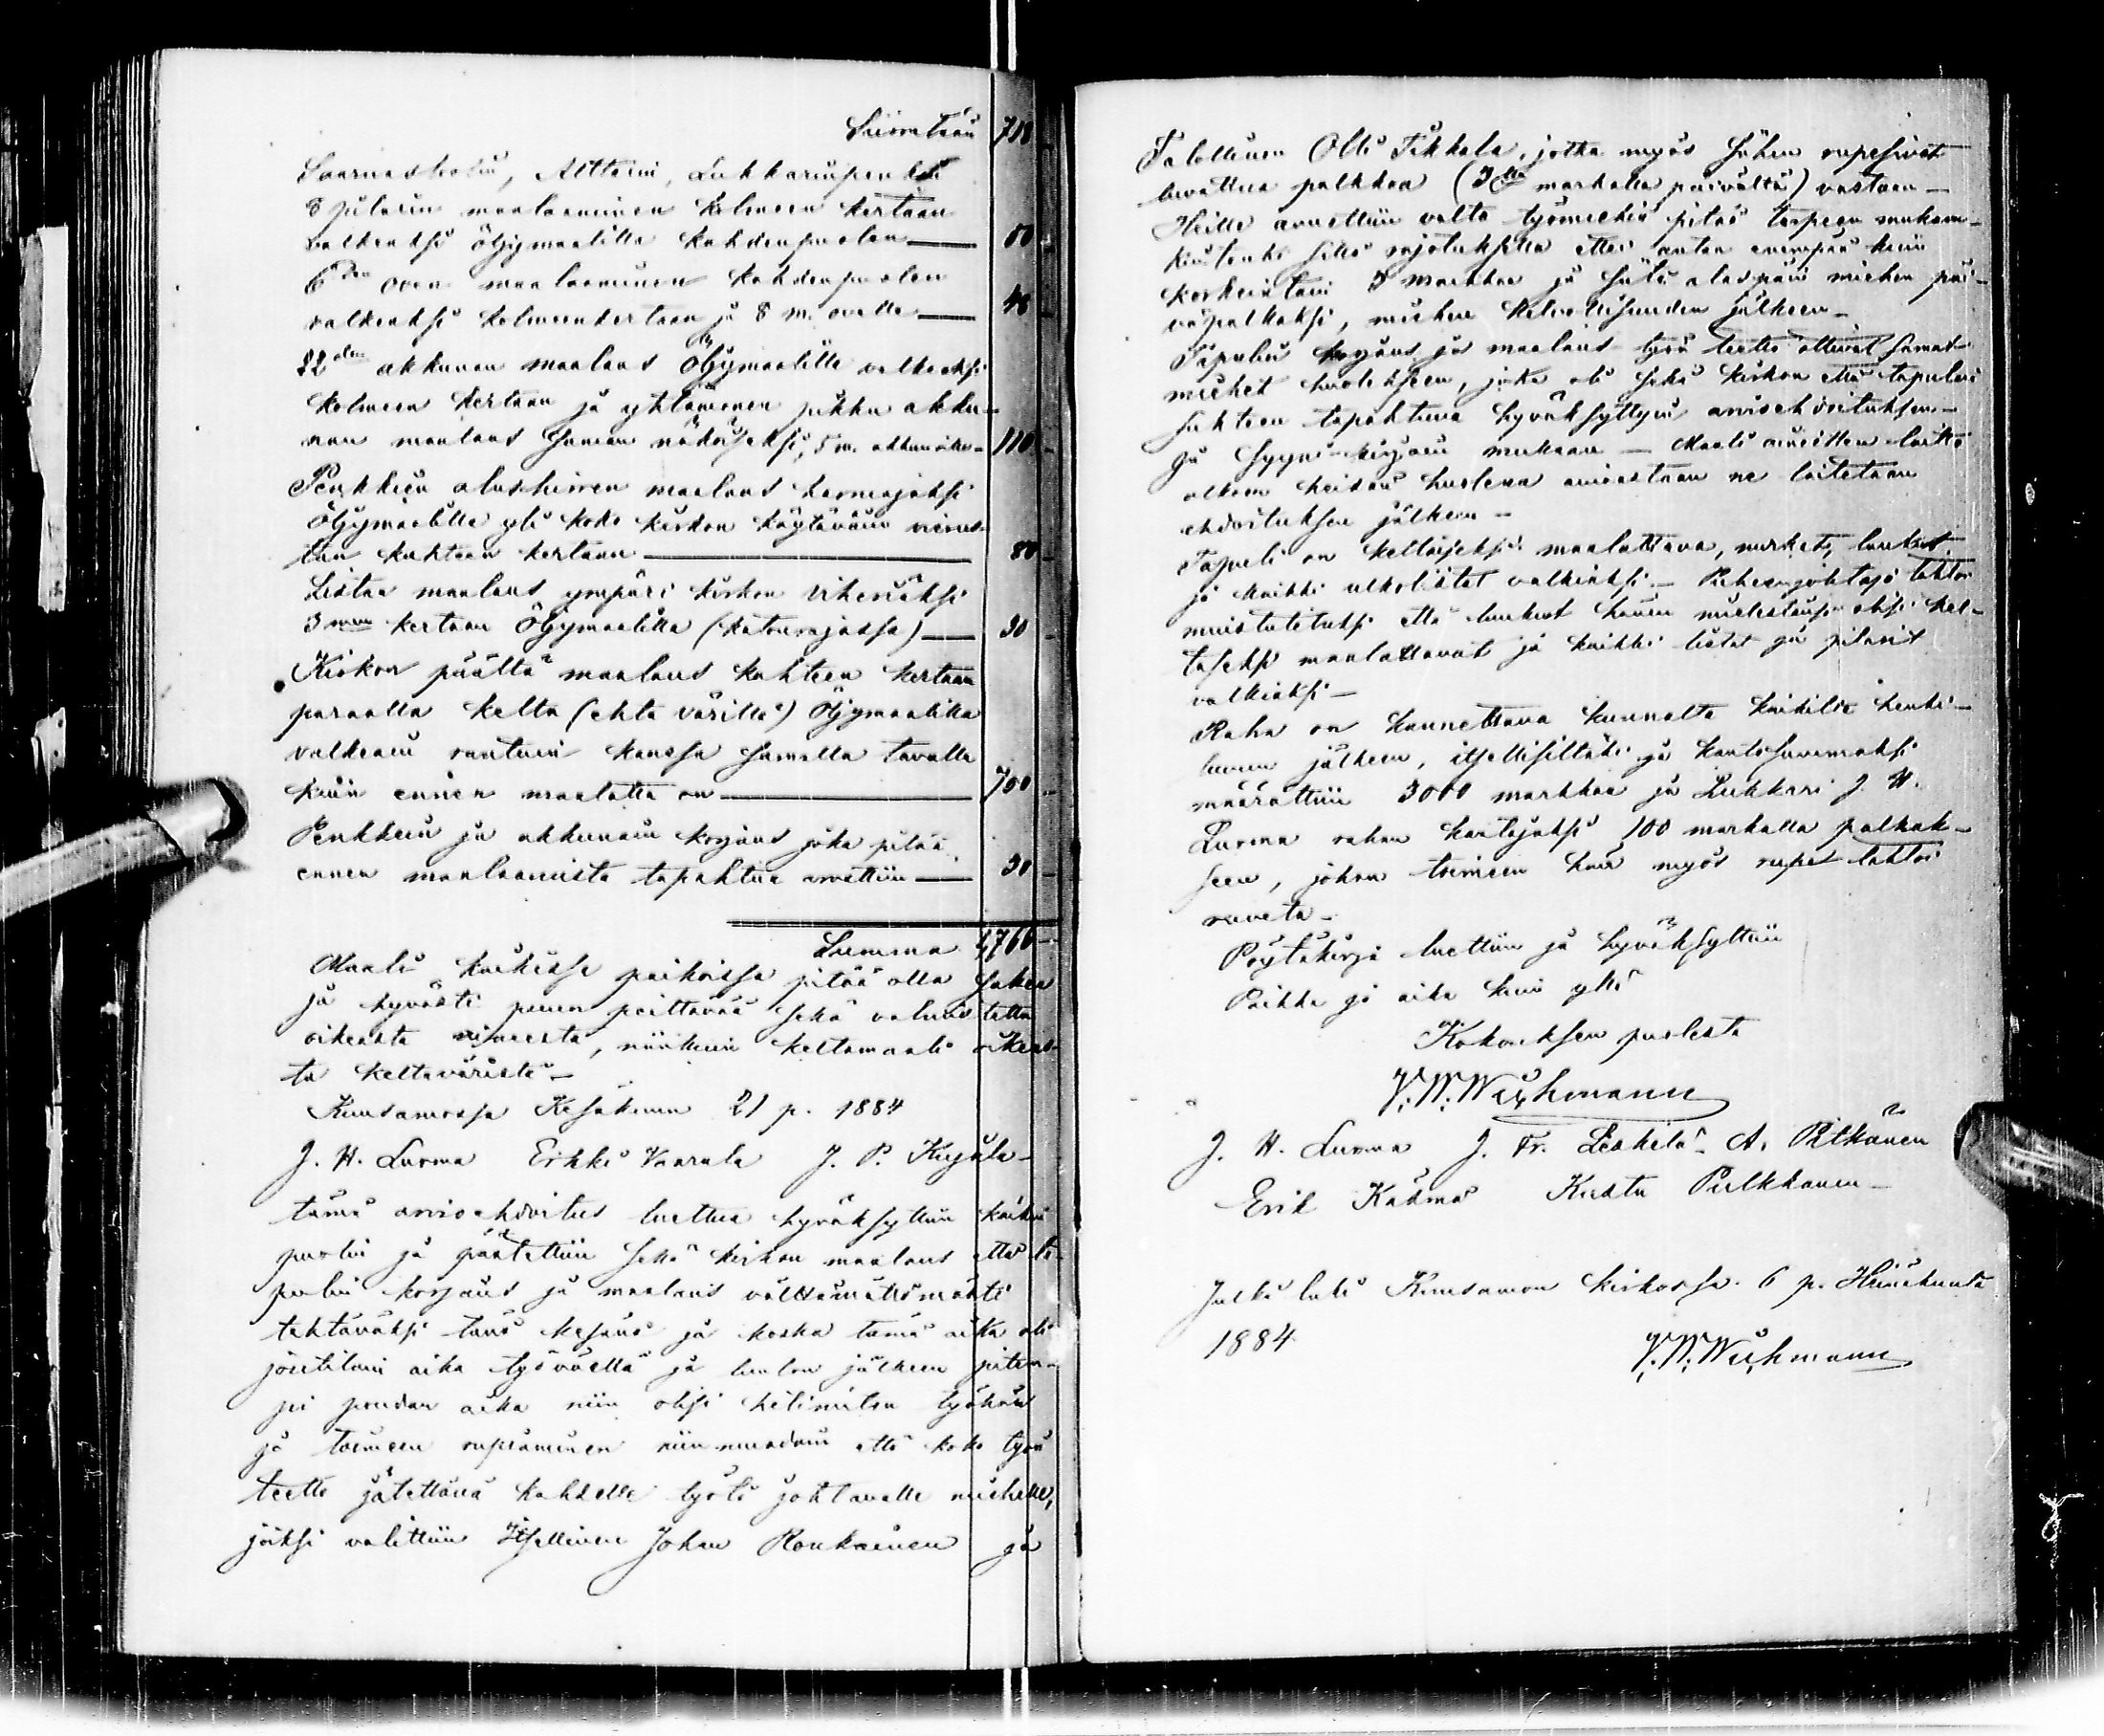 Siirretään 718
Saarnastuolin, Alttarin, Lukkarinpenkin
8 pilarin maalaaminen kolmeen kertaan
valkeaksi öljymaalilla kahdenpuolen — 80 -
6den oven maalaaminen kahdenpuolen
valkeaksi kolmeenkertaan ja 8 m. ovelle — 48 -
22den akkunan maalaus Öljymaalilla valkeaksi
kolmeen kertaan ja yhtämonen pikku akku-
nan maalaus saman näköiseksi, 5 m. akkunalle - 110 -
Penkkein alushirren maalaus harmajaksi
Öljymaalilla yli koko kirkon käytäväin vierus-
tan kahteen kertaan — 80 -
Listan maalaus ympäri kirkon viheriäksi
3meen kertaan Öljymaalilla (katonrajassa) — 30 -
Kirkon päältä maalaus kahteen kertaan
paraalla kelta (ehta värillä) Öljymaalilla
valkeain rantuin kanssa samalla tavalla
kuin ennen maalattu on — 700 -
Penkkein ja akkunain korjaus joka pitää
ennen maalaamista tapahtua arvattiin — 30 -
Summa 1,766 -
Maali kaikissa paikoissa pitää olla sakea
ja hyvästi puun peittävää sekä valmistettu
oikeasta vernissasta, niinkuin keltamaali oikeas-
ta keltaväristä -
Kuusamossa Kesäkuun 21 p. 1884
J. H. Luoma Erkki Vaarala J. P. Kujala -
tämä arvioehdoitus luettua hyväksyttiin kaikin
puolin ja päätettiin sekä kirkon maalaus että ta-
pulin korjaus ja maalaus välttämättömästi
tehtäväksi tänä kesänä ja koska tämä aika oli
joutilain aika työväellä ja luulon jälkeen pitem-
pi poudan aika niin olisi kiliimiten työhön
ja toimeen rupiaminen niin muodoin että koko työn
teettö jätettävä kahdelle työtä johtavalle miehelle,
joiksi valittiin Itsellinen Johan Ronkainen ja
Talollinen Olli Tikkala, jotka myös siihen rupesivat
luvattua palkkaa (3lla markalla päivältä) vastaan -
Heille annettiin valta työmiehiä pitää tarpeen mukaan -
kuitenki sillä rajoituksella ettei anta enempää kuin
korkeintain 3 markkaa ja siitä alaspäin miehen päi-
väpalkaksi, miehen kelvollisuuden jälkeen -
Tapulin korjaus ja maalaus työn teettö ottivat samat
miehet huoleksen, joka oli sekä kirkon että tapulin
suhteen tapahtuva hyväksyttyin arvioehdoituksen -
ja syyni-kirjain mukaan - Maali aineitten laitto
olkoon heidän huolena ainoastaan ne laitetaan
ehdoituksen jälkeen -
Tapuli on keltaiseksi maalattava, nurkat, luukut
ja kaikki ulkolistat valkiaksi - Puheenjohtaja tahtoi
muistutetuksi että luukut hänen mielestänsä olisi kel-
taseksi maalattavat ja kaikki listat ja pilarit
valkiaksi -
Raha on kannettava kunnalta kaikilta henki-
luvun jälkeen, itsellisiltäki ja kantosummaksi
määrättiin 3000 markkaa ja Lukkari J. H.
Luoma rahan kantajaksi 100 markalla palkak-
seen, johon toimeen hän myös rupet tahtoi
ruveta -
Pöytäkirja luettiin ja hyväksyttiin
Paikka ja aika kuin yllä
Kokouksen puolesta
V. W. Wichmann
J. H. Luoma J. Fr. Leskelä - A. Pitkänen
Erik Käsmä Kusta Pulkkanen -
Julki luki Kuusamon kirkossa 6 p. Heinäkuuta
1884
V. W. Wichmann